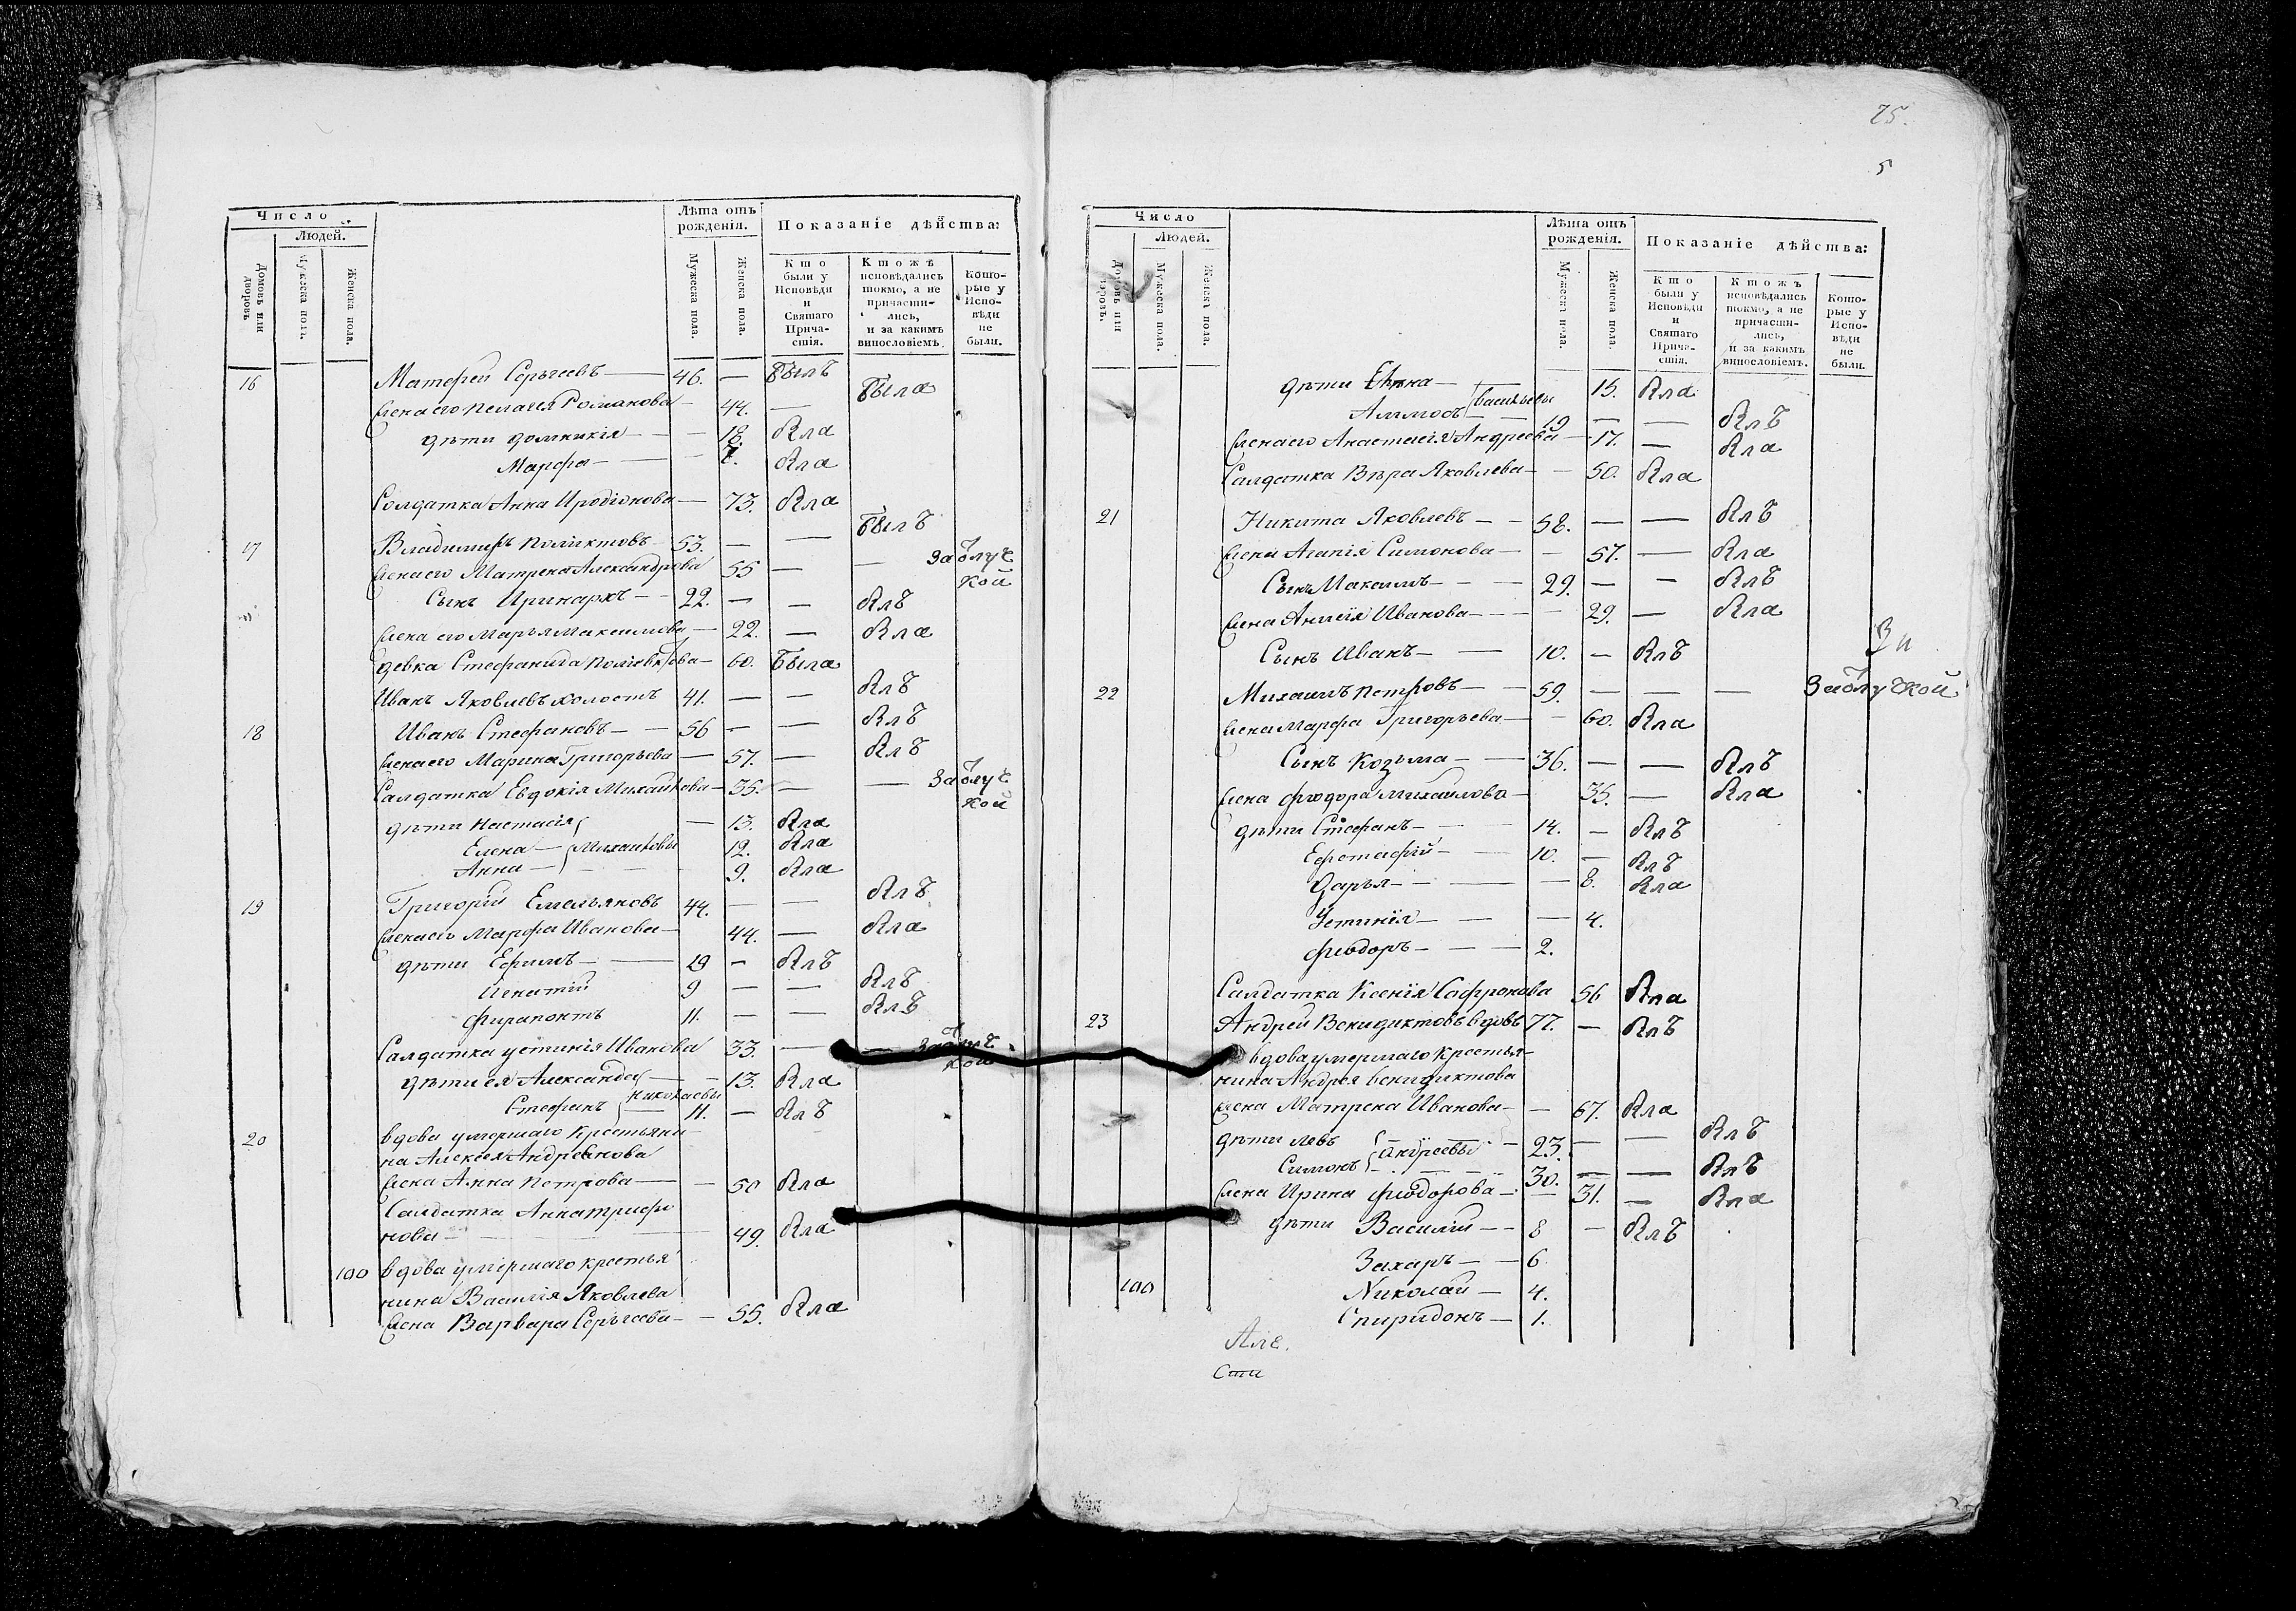 Число
Людей.
Домовъ или дворовъ.
Мужеска пола.
Женска пола.
Лѣта отъ рожденія.
Мужеска пола.
Женска пола.
Показаніе дѣйства:
Кто были у Исповѣди и Святаго Причастія.
Ктожъ исповѣдались токмо, а не причастились, и за какимъ винословіемъ.
Которые у Исповѣди не были.
16 Матѳей Сергѣевъ — 46. — былъ
Жена его Пелагея Романова — 44. — была
дѣти Домникія — — 18. бла
Марфа — — 7. бла
Солдатка Анна Иродіонова — 73. бла
17 Владимиръ Полиектовъ — 53. — — былъ
Жена его Матрена Александрова 55 — — за отлучкой
Сынъ Иринархъ — 22. — — блъ
Жена его Марья Максимова — 22. — бла
девка Стефанида Полиевктова — 60. была
Иванъ Яковлевъ холостъ 41. — — блъ
18 Иванъ Стефановъ — 56 — — блъ
Жена его Марина Григорьева — 57. — блъ
Салдатка Евдокія Михайлова — 35. — — за отлучкой
дѣти Настасія — 13. бла
Елена — Михайловы 12. бла
Анна — 9. бла
19 Григорій Емельяновъ 44. — — блъ
Жена его Марфа Иванова — 44. — бла
дѣти Ефимъ — 19 — блъ
Игнатій 9 — — блъ
Фирапонтъ 11. — — блъ
Салдатка Устинія Иванова 33. — — за отлучкой
дѣти ея Александра — — 13. бла
Стефанъ Николаевы 11. — блъ
20 вдова умершаго крестьяни-
на Алексея Андреянова
Жена Анна Петрова — — 50 бла
Салдатка Анна Трифо
нова — 49. бла
100 вдова умершаго крестья
нина Василія Яковлева
Жена Варвара Сергѣева — 55. бла
75.
5
Число
Людей.
Домовъ или дворовъ.
Мужеска пола.
Женска пола.
Лѣта отъ рожденія.
Мужеска пола.
Женска пола.
Показаніе дѣйства:
Кто были у Исповѣди и Святаго Причастія.
Ктожъ исповѣдались токмо, а не причастились, и за какимъ винословіемъ.
Которые у Исповѣди не были.
дѣти — 15. бла
Аммосъ Васильевы 19 — — блъ
Жена его Анастасія Андреева — 17. — бла
Салдатка Вѣра Яковлева — — 50. бла
21 Никита Яковлевъ — — 58. — — блъ
Жена Агапія Симонова — — 57. — бла
Сынъ Максимъ — — 29. — — блъ
Жена Иванова — — 29. — бла
Сынъ Иванъ — — 10. — блъ
22 Михаилъ Петровъ — — 59. — — — за отлучкой
Жена Марфа Григорьева — — 60. бла
Сынъ Козьма — — 36. — — блъ
Жена Фиодора Михайлова — 35. — бла
дѣти Стефанъ — — 14. — блъ
— — 10. — блъ
Дарья — — — 8. бла
Устинія — — — 4.
Фиодоръ — — — 2.
Салдатка Ксенія Софронова 56 бла
23 Андрей Венидиктовъ вдовъ 77. — блъ
вдова умершаго крестья-
нина Андрея Венидиктова
жена Матрена Иванова — — 67. бла
дѣти Левъ — 23. — — блъ
Симонъ Андреевы — 30. — — блъ
Жена Ирина Фиодорова — — 31. — бла
дѣти Василій — — 8 — блъ
Захаръ — — 6.
100 Николай — 4.
Спиридонъ — 1.
Але.